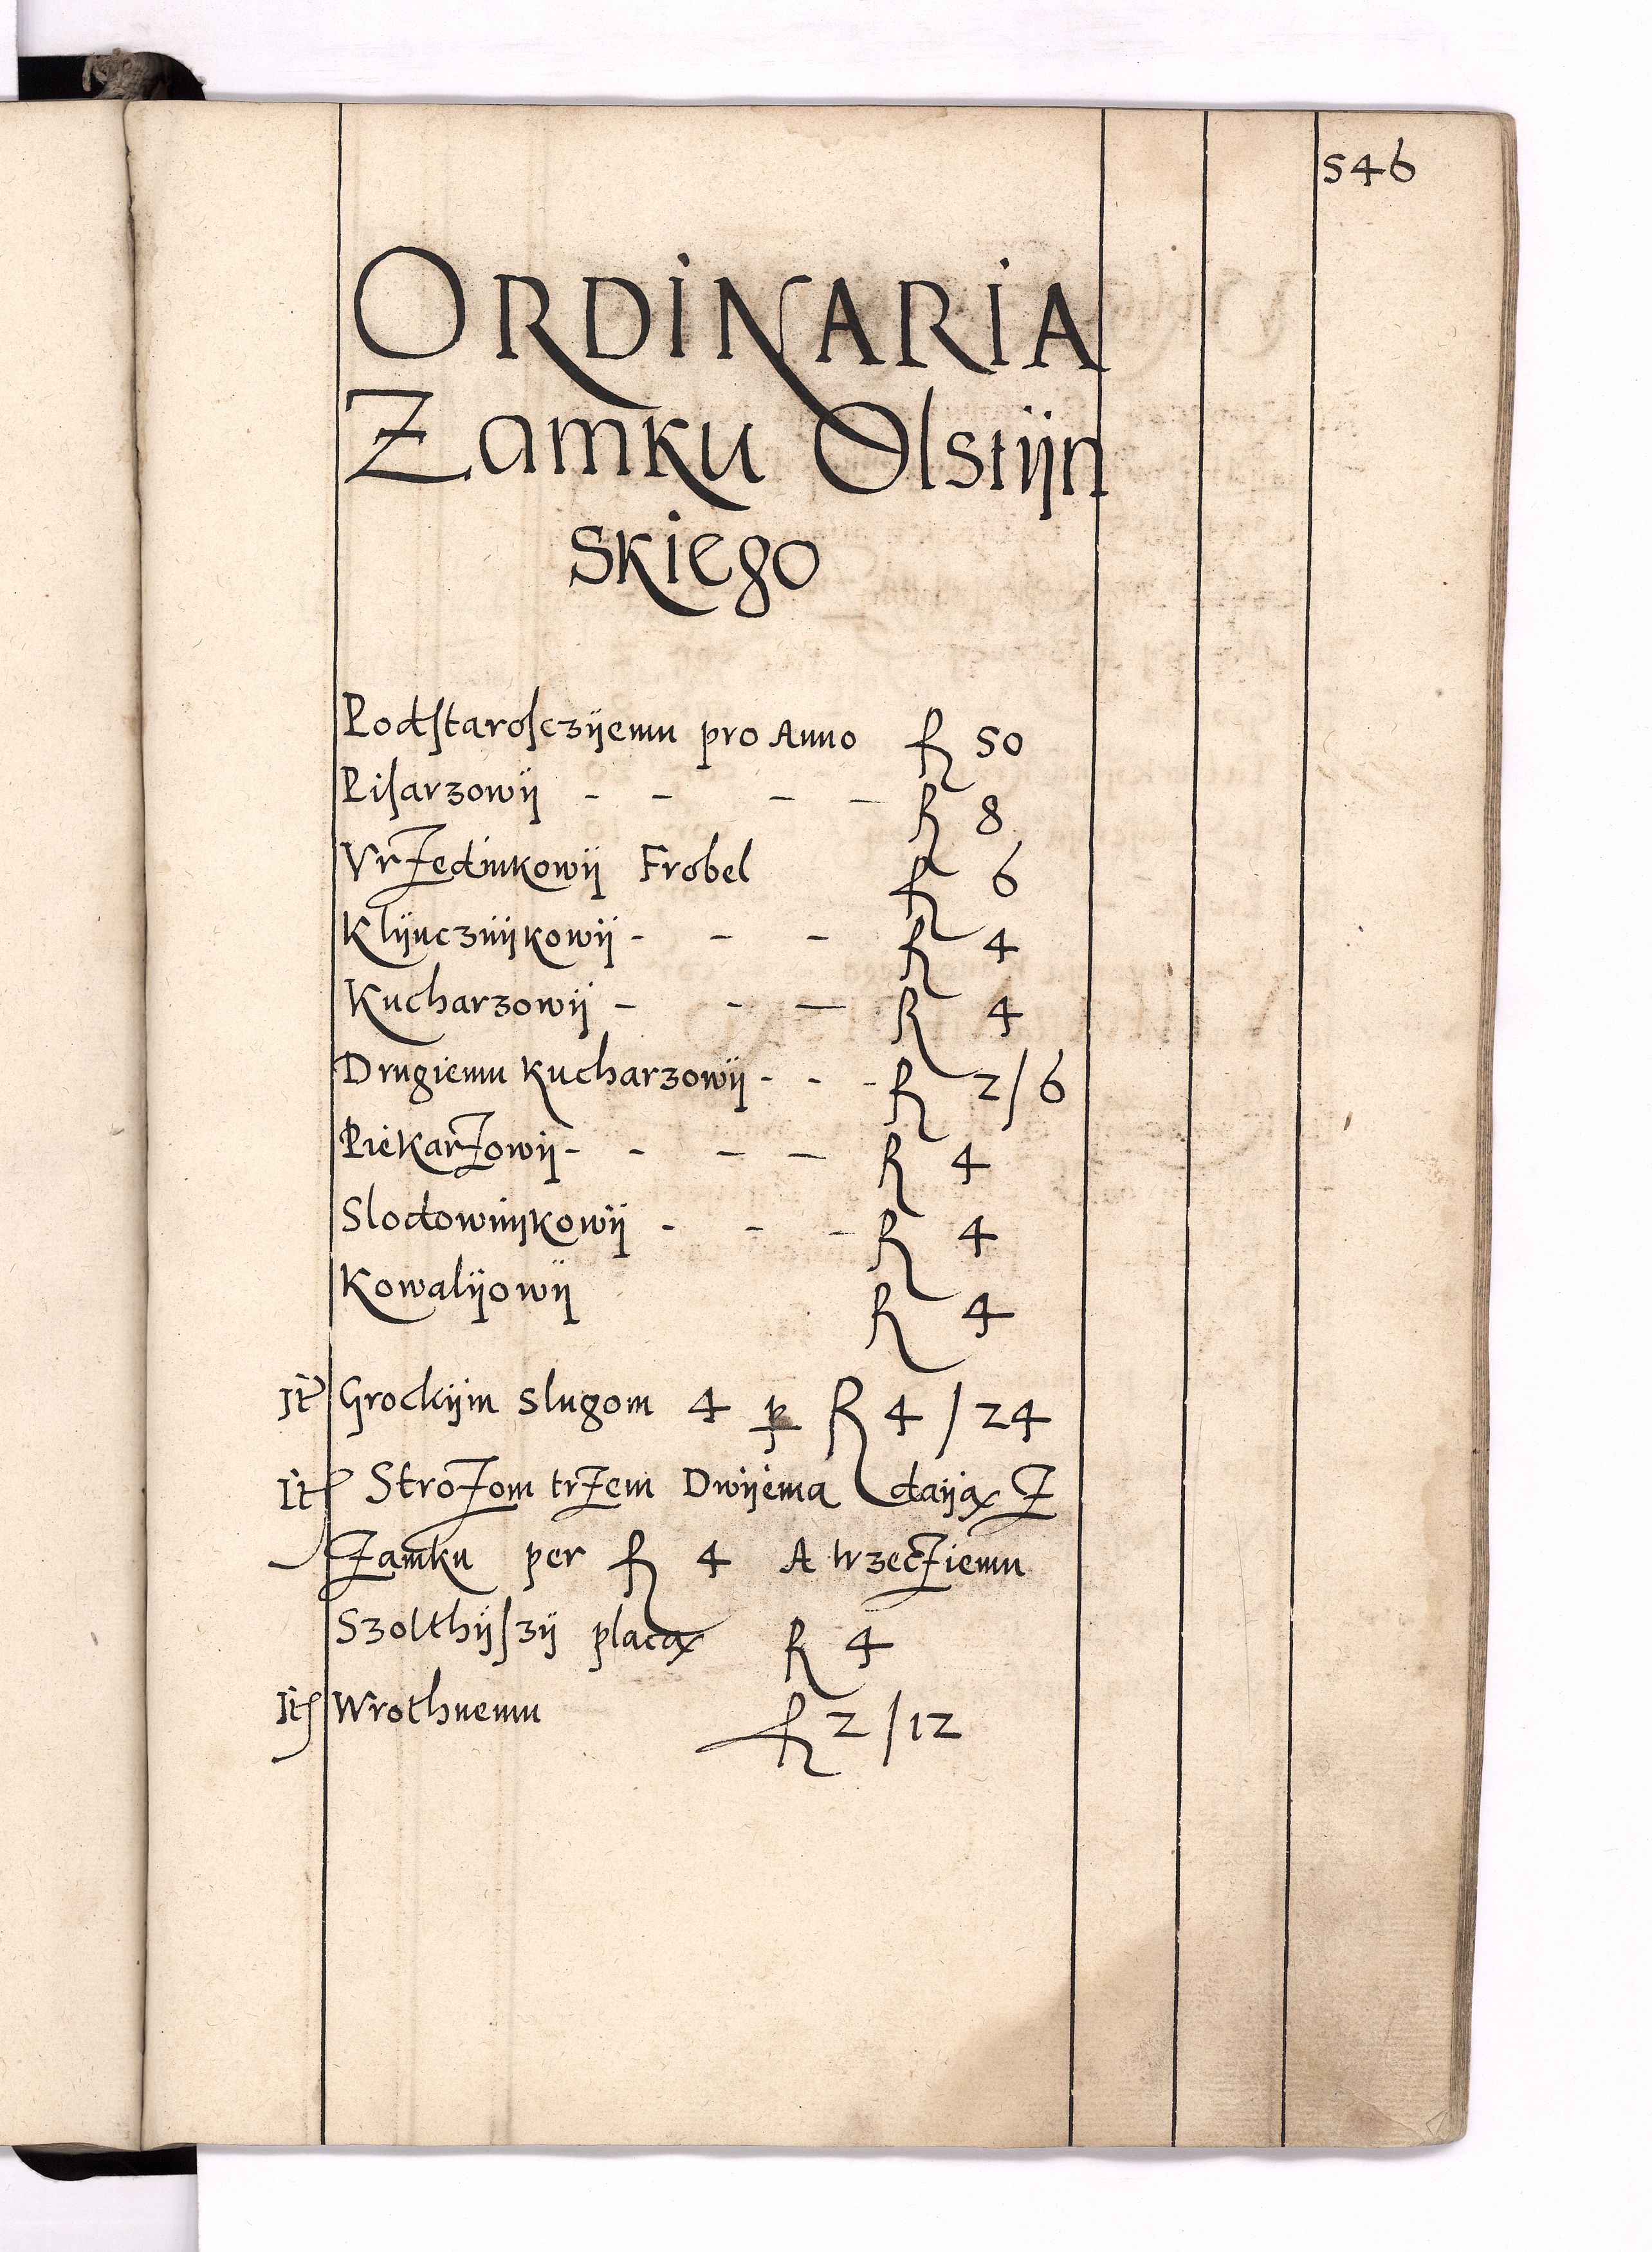 546
ORDINARIA
Zamku Olstijn
skiego
Podſtaroſczÿemu pro Anno R 50
Piſarzowÿ - - - - R 8
Vrzedinkowÿ Frobel R 6
Klÿucznÿkowÿ - - - R 4
Kucharzowÿ - - - R 4
Drugiemu kucharzowÿ - - - R 2/6
Piekarzowÿ - - - - R 4
Slodownÿkowÿ - - - R 4
Kowalÿowÿ R 4
It Grockÿm slugom 4 p R 4/24
It Strozom trzem Dwÿema daÿą z
Zamku per R 4 A trzecziemu
Szolthÿſzÿ placą R 4
It Wrothnemu R 2/12